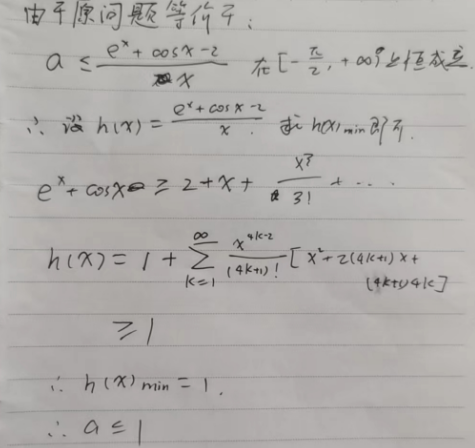 由于原问题等价于:
a ≤ (e^x + cosx - 2)/x 在 [-π/2, +∞) 上恒成立.
∴ 设 h(x) = (e^x + cosx - 2)/x. 求 h(x)min 即可.
e^x + cosx ≥ 2 + x + x^3/3! + ...
h(x) = 1 + ∑_{k=1}^{∞} x^{4k-2}/(4k+1)! [x^2 + 2(4k+1)x + (4k+1)4k]
≥ 1
∴ h(x)min = 1.
∴ a ≤ 1